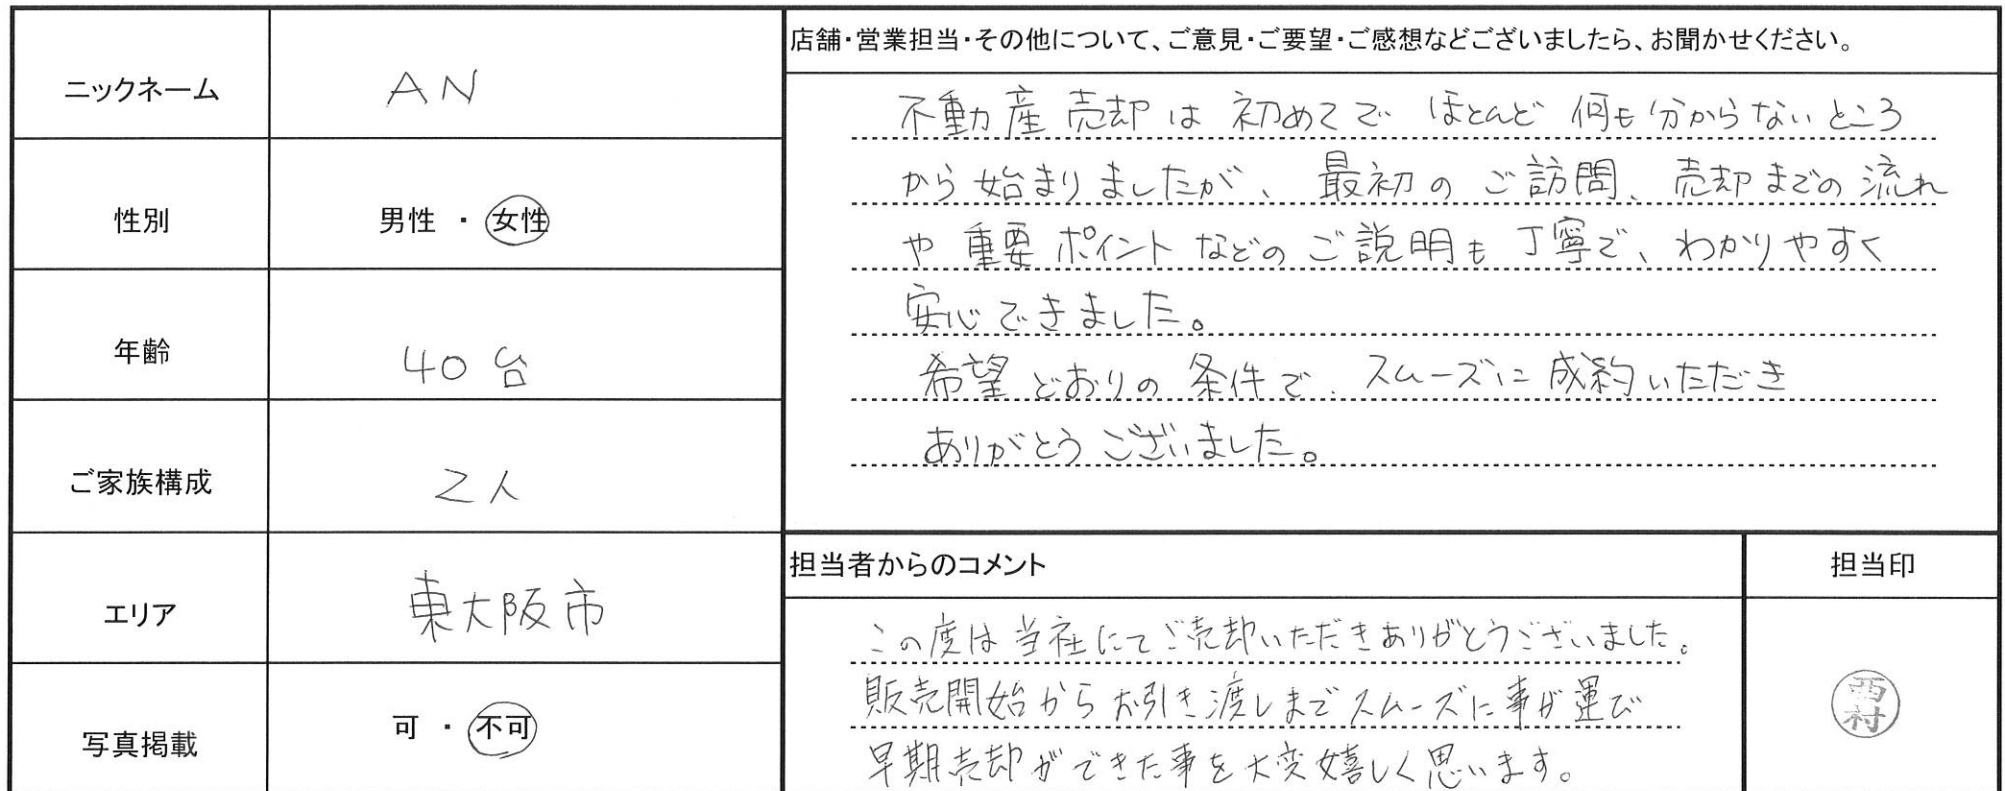 ニックネーム
AN
性別
男性 ・ 女性
年齢
40台
ご家族構成
2人
エリア
東大阪市
写真掲載
可 ・ 不可
店舗・営業担当・その他について、ご意見・ご要望・ご感想などございましたら、お聞かせください。
不動産売却は初めてで ほとんど何も分からないところ
から始まりましたが、最初のご訪問、売却までの流れ
や重要ポイントなどのご説明も丁寧で、わかりやすく
安心できました。
希望どおりの条件で、スムーズに成約いただき
ありがとうございました。
担当者からのコメント
この度は当社にてご売却いただきありがとうございました。
販売開始からお引き渡しまでスムーズに事が運び
早期売却ができた事を大変嬉しく思います。
担当印
西村